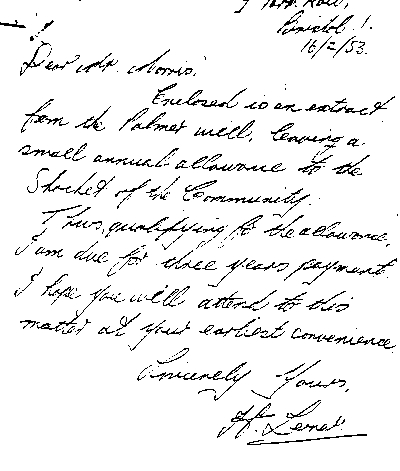 Bristol 1.
16/2/53.
Dear Mr. Morris.
Enclosed is an extract
from the Palmer will, leaving a
small annual allowance to the
Shochet of the Community.
Thus, qualifying for the allowance,
I am due for three years payment.
I hope you will attend to this
matter at your earliest convenience.
Sincerely Yours,